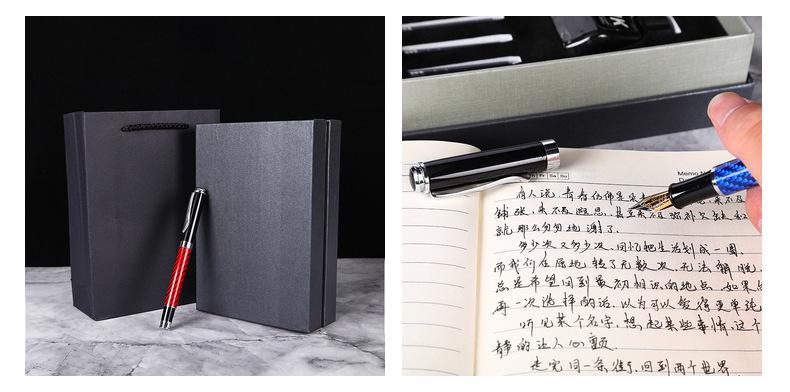 Fr Sa Su
Memo
有人说,青春仿佛是 来不及
铺张,来不及遐思,甚至来不及弥补欠缺和
就那么匆匆地谢了.
多少次又多少次,回忆把生活划成一圆.
而我们在原地转了无数次,无法解脱.
总是希望回到最初相识的地点,如果
再一次选择的话,以为可以爱得更单纯
听见某个名字,想起某些事情,这个
静的让人心颤.
走完同一条街,回到两个世界